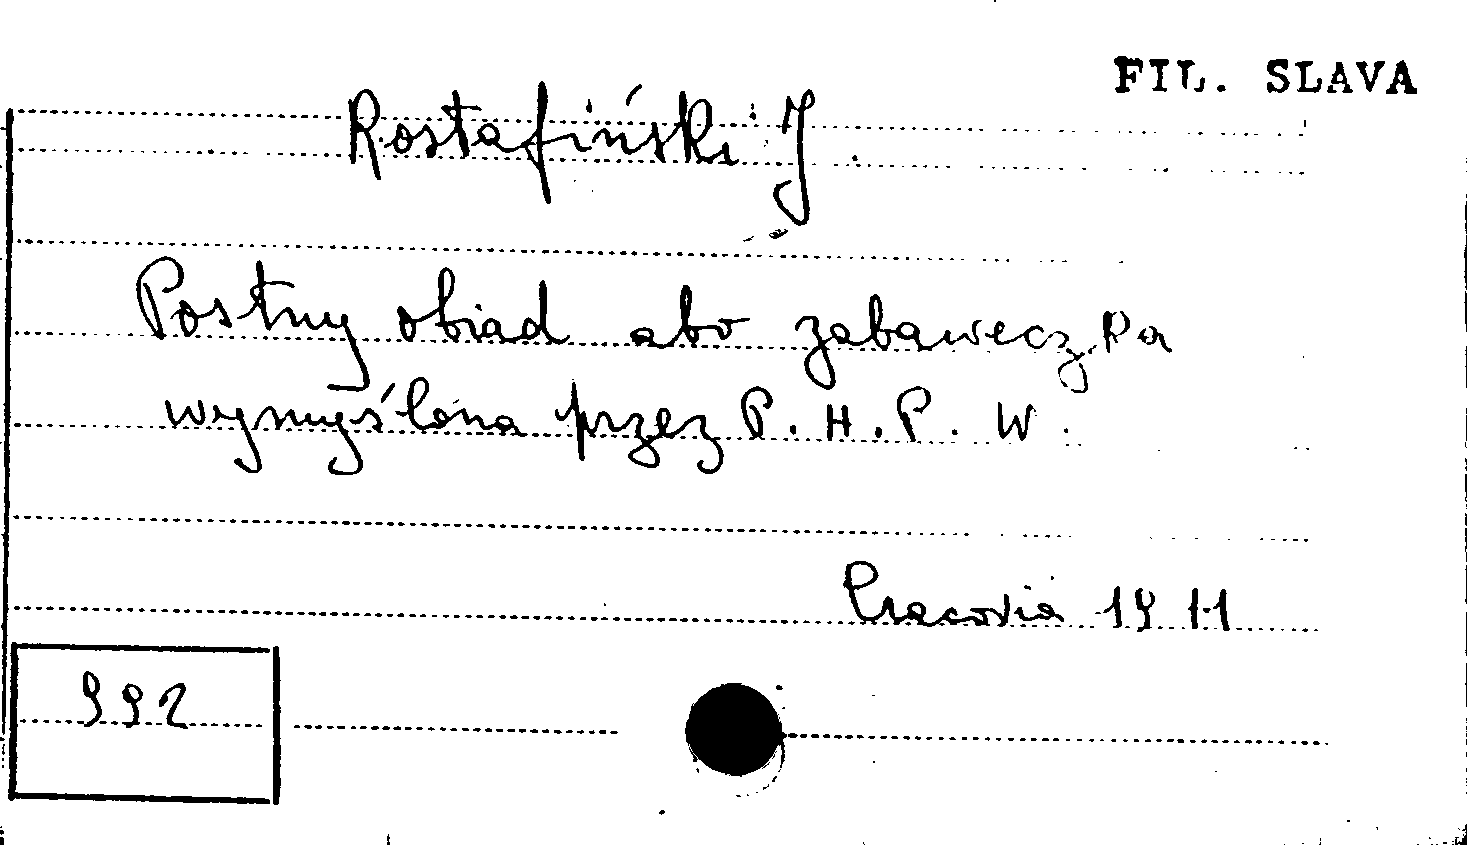 FIL. SLAVA
Rostafiński J.
Postny obiad abo zabaweczka
wymyślona przez P. H. P. W.
Cracovia 1911
992